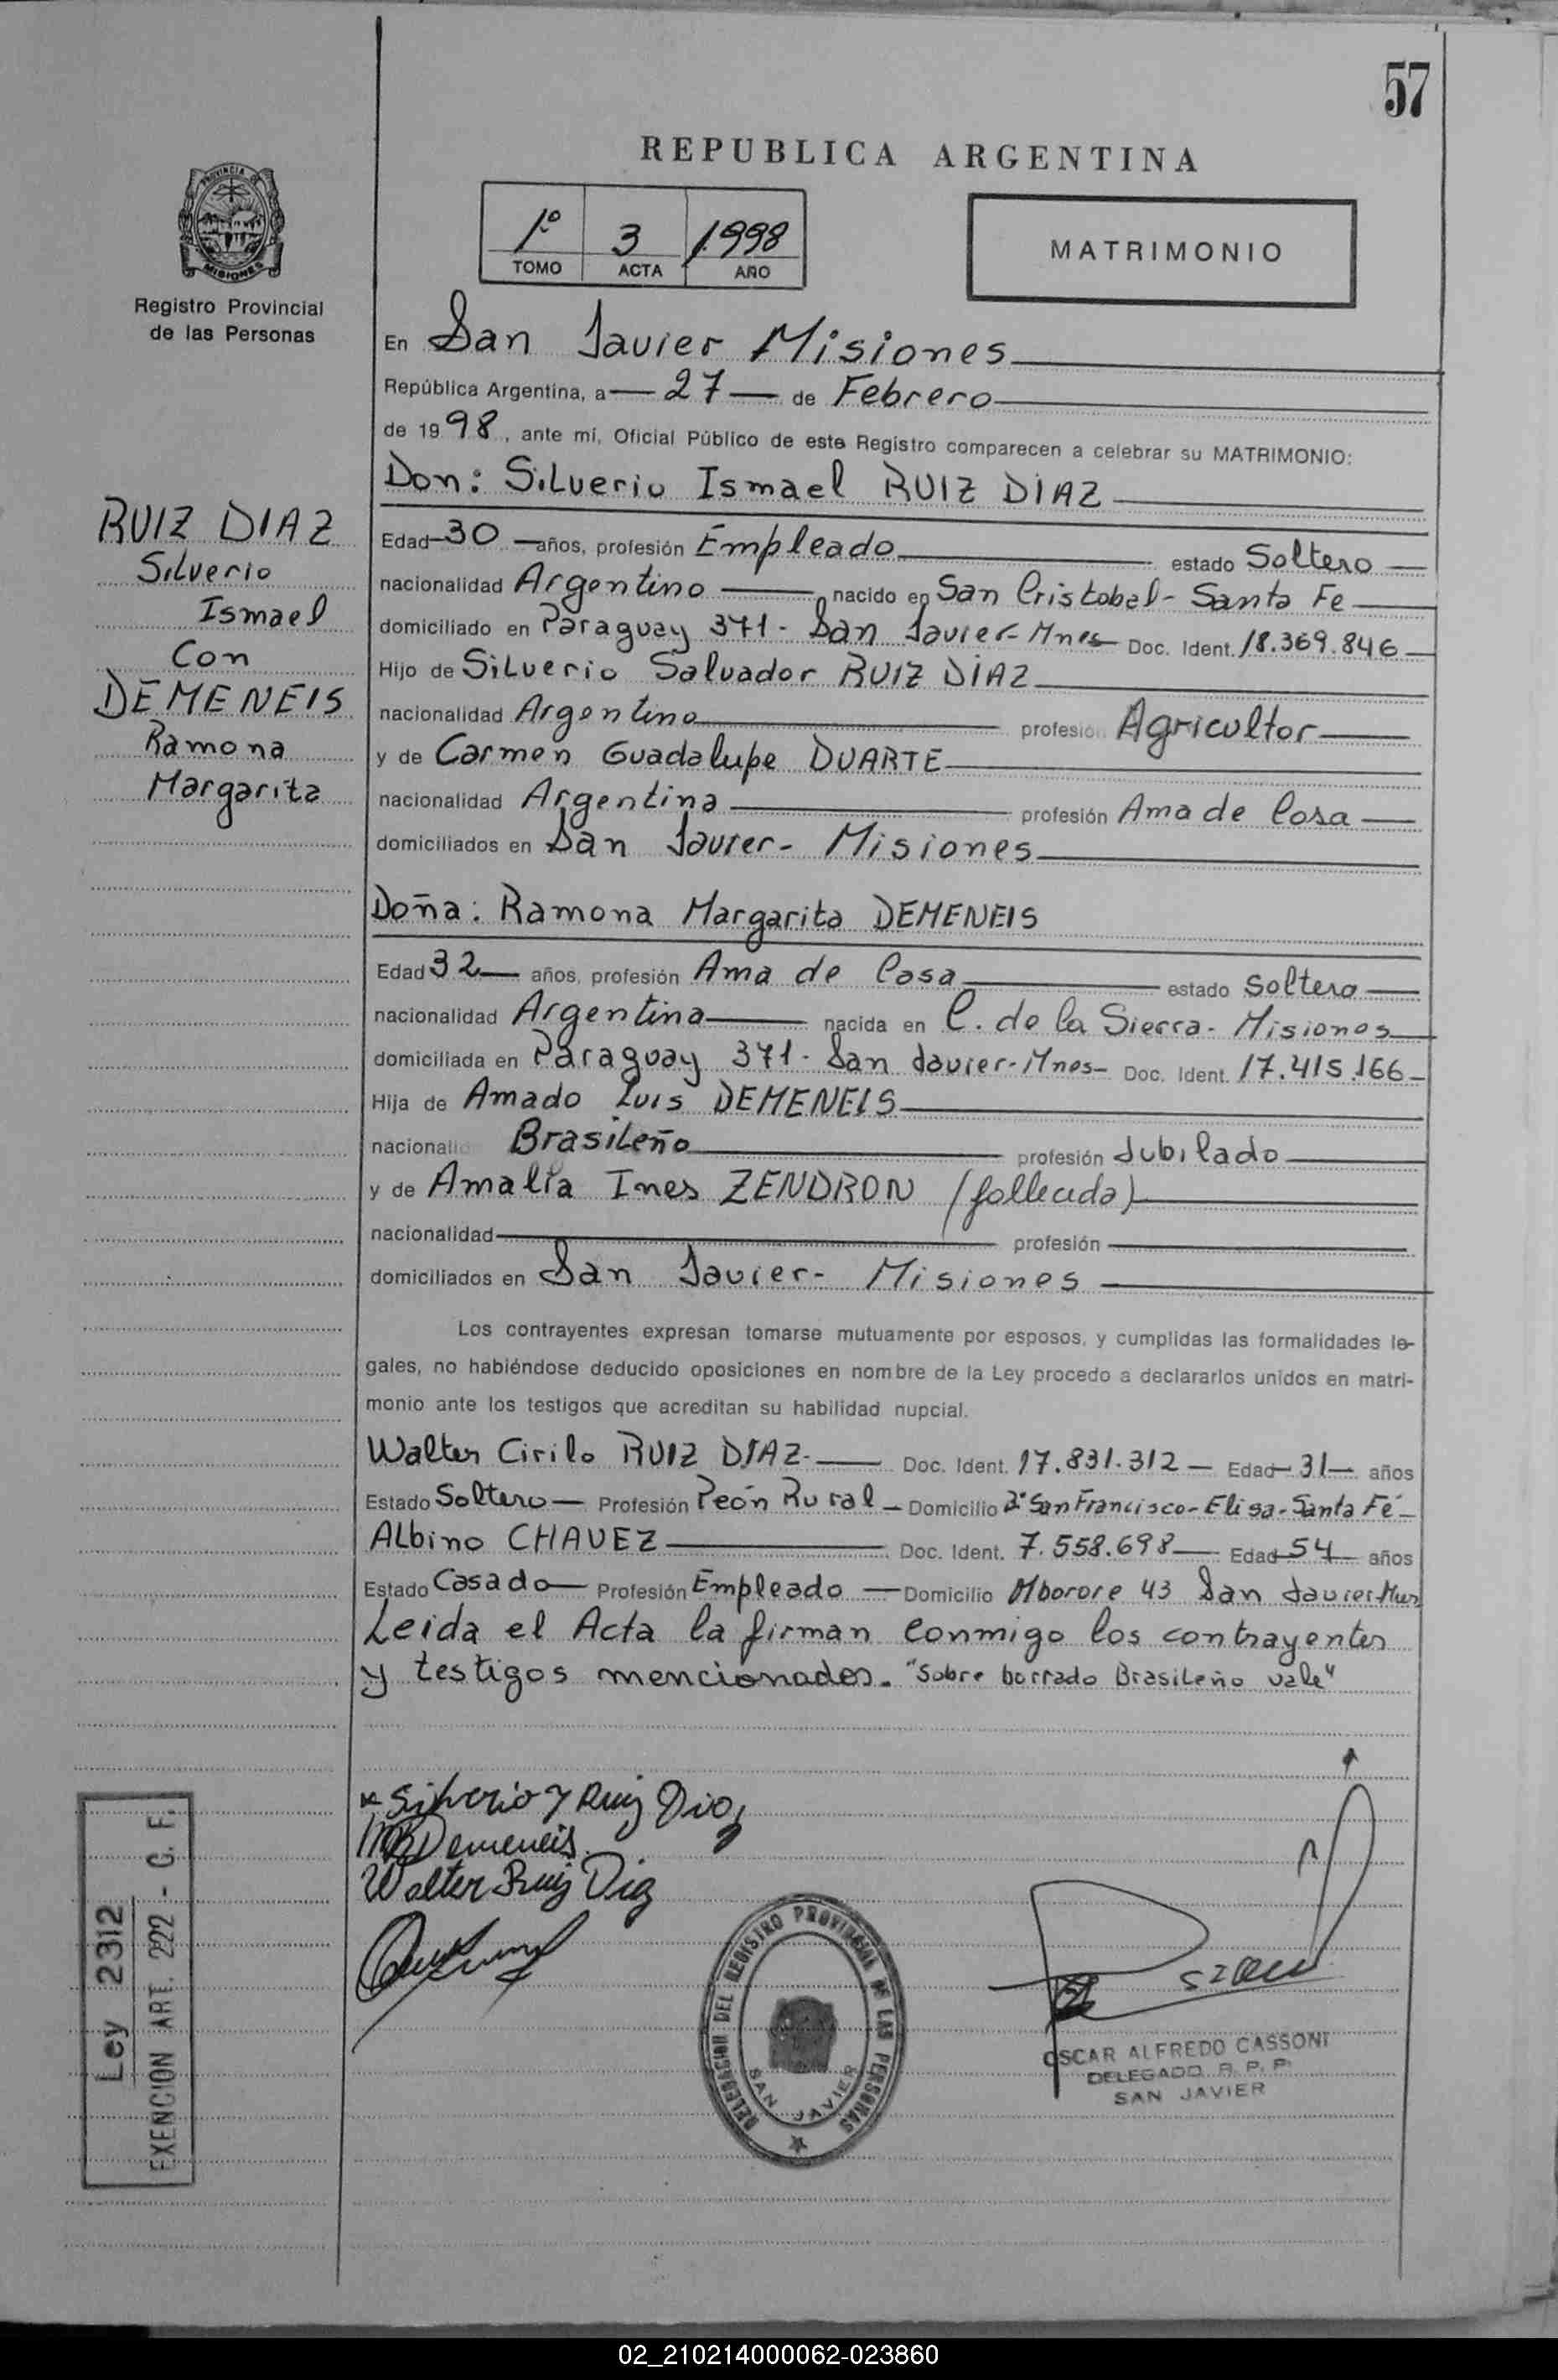 57
REPUBLICA ARGENTINA
PROVINCIA DE
MISIONES
Registro Provincial
de las Personas
1º 3 1998
TOMO ACTA AÑO
MATRIMONIO
En San Javier Misiones
República Argentina, a 27 de Febrero
de 1998, ante mí, Oficial Público de este Registro comparecen a celebrar su MATRIMONIO:
Don: Silverio Ismael RUIZ DIAZ
RUIZ DIAZ
Silverio
Ismael
Con
DEMENEIS
Ramona
Margarita
Edad 30 años, profesión Empleado estado Soltero
nacionalidad Argentino nacido en San Cristobal - Santa Fe
domiciliado en Paraguay 371 - San Javier - Mnes Doc. Ident. 18.369.846
Hijo de Silverio Salvador RUIZ DIAZ
nacionalidad Argentino profesión Agricultor
y de Carmen Guadalupe DUARTE
nacionalidad Argentina profesión Ama de Casa
domiciliados en San Javier - Misiones
Doña: Ramona Margarita DEMENEIS
Edad 32 años, profesión Ama de Casa estado Soltera
nacionalidad Argentina nacida en C. de la Sierra - Misiones
domiciliada en Paraguay 371 - San Javier - Mnes - Doc. Ident. 17.415.166
Hija de Amado Luis DEMENEIS
nacionali Brasileño profesión Jubilado
y de Amalia Ines ZENDRON (fallecida)
nacionalidad profesión
domiciliados en San Javier - Misiones
Los contrayentes expresan tomarse mutuamente por esposos, y cumplidas las formalidades le-
gales, no habiéndose deducido oposiciones en nombre de la Ley procedo a declararlos unidos en matri-
monio ante los testigos que acreditan su habilidad nupcial.
Walter Cirilo RUIZ DIAZ - Doc. Ident. 17.831.312 - Edad 31 años
Estado Soltero Profesión Peón Rural - Domicilio San Francisco - Elisa - Santa Fé
Albino CHAVEZ Doc. Ident. 7.558.698 Edad 54 años
Estado Casado Profesión Empleado Domicilio Mborore 43 San Javier Mnes
Leida el Acta la firman conmigo los contrayentes
y testigos mencionados. "Sobre borrado Brasileño vale"
Silverio Y Ruiz Diaz
Demeneis
Walter Ruiz Diaz
Ley 2312
EXENCION ART. 222 - C. F.
DELEGACION DEL REGISTRO PROVINCIAL DE LAS PERSONAS
SAN JAVIER
OSCAR ALFREDO CASSONI
DELEGADO R. P. P.
SAN JAVIER
02_210214000062-023860